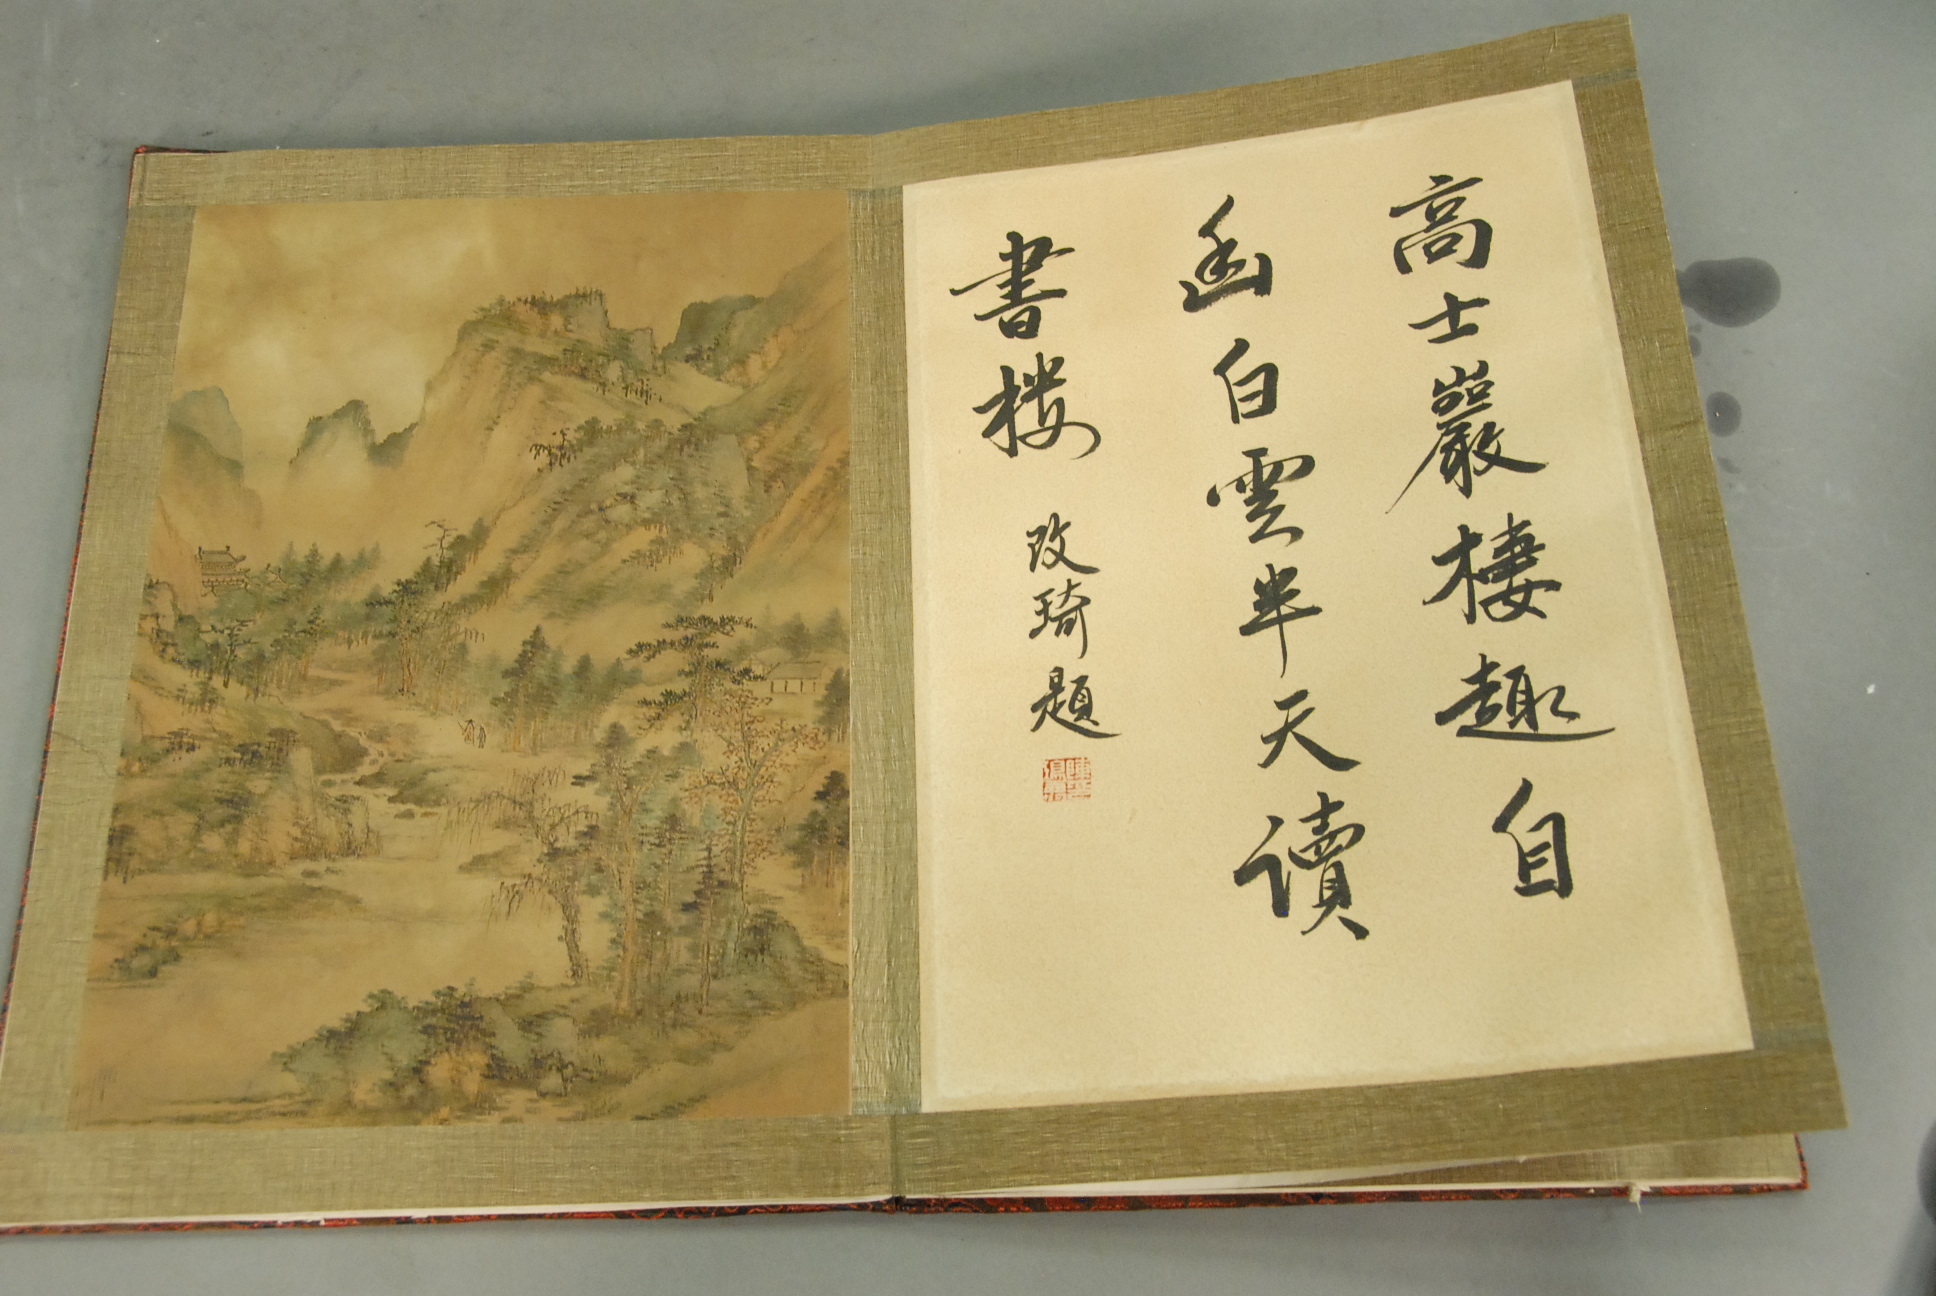 高士巖棲趣自
幽白雲半天讀
書楼
改琦題